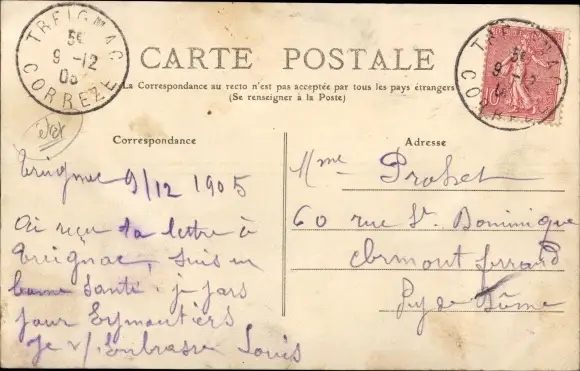 TREIGNAC
5E
9 -12
05
CORREZE
CARTE POSTALE
La Correspondance au recto n'est pas acceptée par tous les pays étrangers
(Se renseigner à la Poste)
TREIGNAC
5E
9 -12
CORREZE
10
Correspondance
Treignac 9/12 1905
Ai reçu ta lettre à
Treignac, suis en
bonne santé. je pars
pour Eymoutiers
Je v/ Embrasse Louis
Adresse
Mme Prohet
60 rue St. Dominique
Clermont ferrand
Puy de Dôme